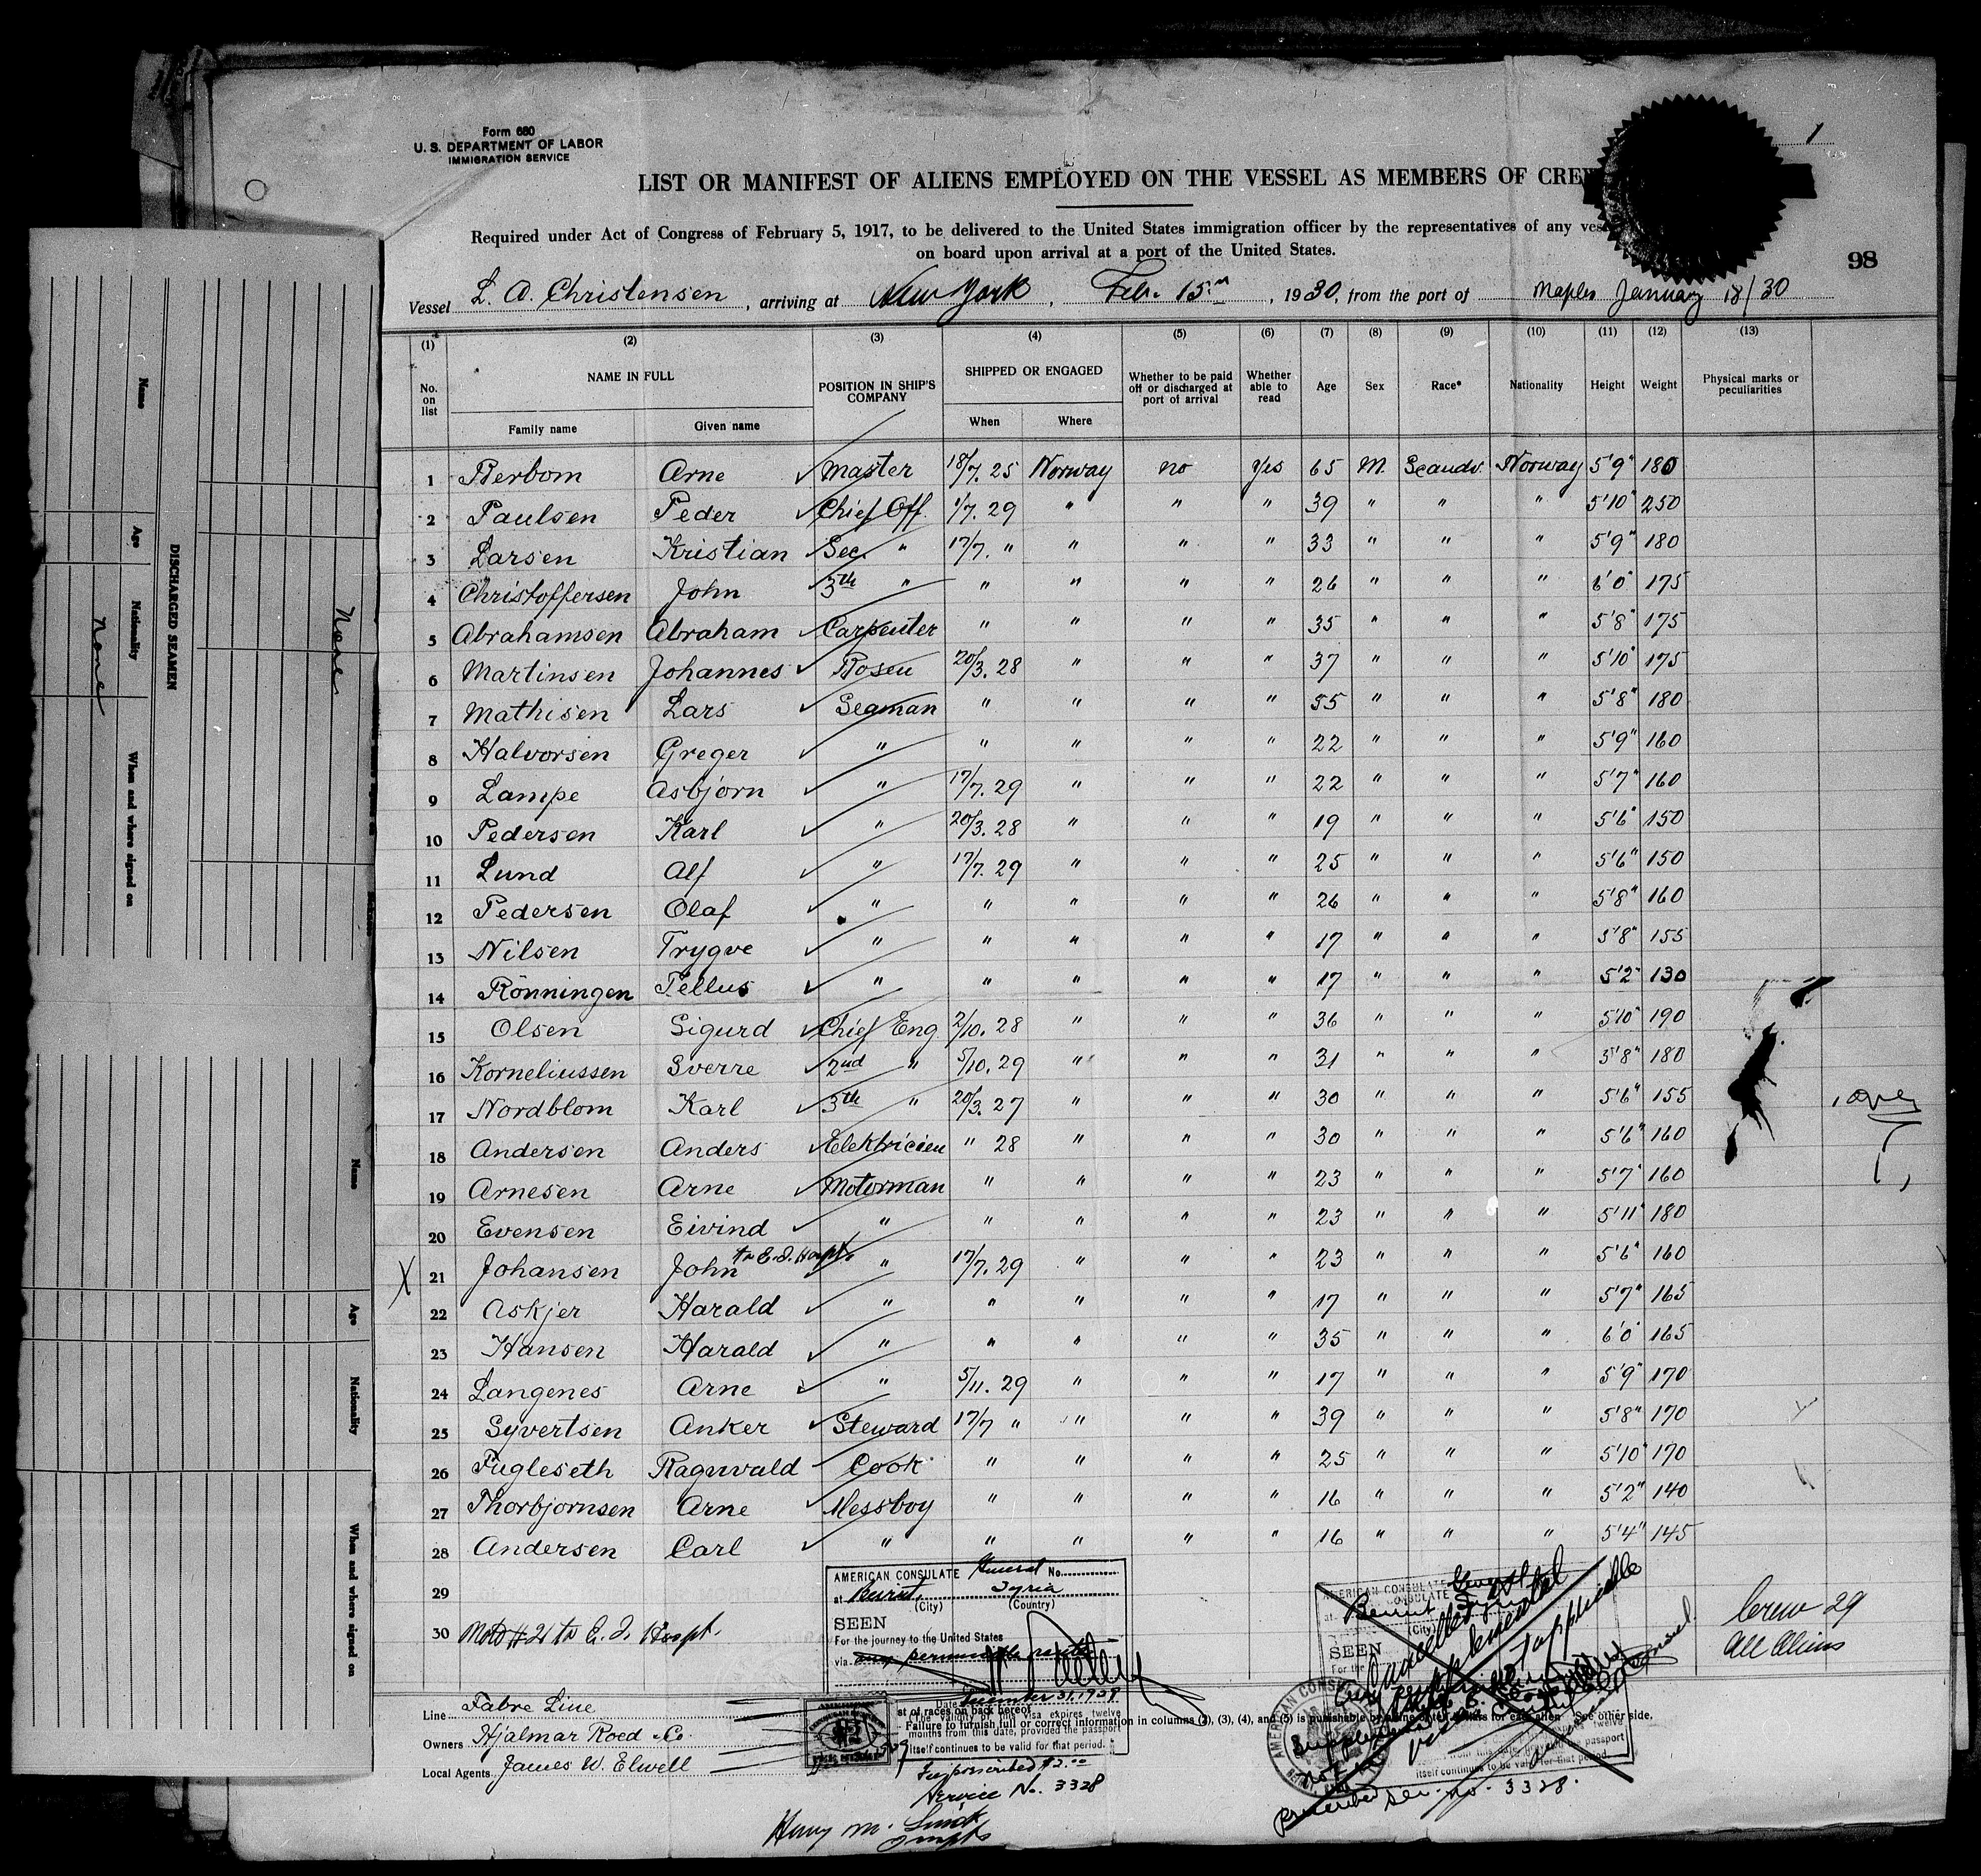 Form 680
U. S. DEPARTMENT OF LABOR
IMMIGRATION SERVICE
1
LIST OR MANIFEST OF ALIENS EMPLOYED ON THE VESSEL AS MEMBERS OF CREW
Required under Act of Congress of February 5, 1917, to be delivered to the United States immigration officer by the representatives of any
on board upon arrival at a port of the United States.
98
Vessel L. A. Christensen, arriving at New York, Feb. 15th, 1930, from the port of Naples January 18/30
(1) (2) (3) (4) (5) (6) (7) (8) (9) (10) (11) (12) (13)
No. on list NAME IN FULL Family name Given name POSITION IN SHIP'S COMPANY SHIPPED OR ENGAGED When Where Whether to be paid off or discharged at port of arrival Whether able to read Age Sex Race* Nationality Height Weight Physical marks or peculiarities
1 Berbom Arne Master 18/7. 25 Norway no Yes 65 M Scandv. Norway 5'9" 180
2 Paulsen Peder Chief Off. 1/7. 29 " " " 39 " " " 5'10" 250
3 Larsen Kristian Sec. " 17/7. " " " " 33 " " " 5'9" 180
4 Christoffersen John 3th " " " " " 26 " " " 6'0" 175
5 Abrahamsen Abraham Carpenter " " " " 35 " " " 5'8" 175
6 Martinsen Johannes Bosen 20/3. 28 " " " 37 " " " 5'10" 175
7 Mathisen Lars Seaman " " " " 55 " " " 5'8" 180
8 Halvorsen Greger " " " " " 22 " " " 5'9" 160
9 Lampe Asbjorn " 17/7. 29 " " " 22 " " " 5'7" 160
10 Pedersen Karl " 20/3. 28 " " " 19 " " " 5'6" 150
11 Lund Alf " 17/7. 29 " " " 25 " " " 5'6" 150
12 Pedersen Olaf " " " " " 26 " " " 5'8" 160
13 Nilsen Trygve " " " " " 17 " " " 5'8" 155
14 Rönningen Tellus " " " " " 17 " " " 5'2" 130
15 Olsen Sigurd Chief Eng 2/10. 28 " " " 36 " " " 5'10" 190
16 Korneliussen Sverre 2nd " 5/10. 29 " " " 31 " " " 5'8" 180
17 Nordblom Karl 3th " 20/3. 27 " " " 30 " " " 5'6" 155
18 Andersen Anders Elektricien " 28 " " " 30 " " " 5'6" 160
19 Arnesen Arne Motorman " " " " 23 " " " 5'7" 160
20 Evensen Eivind " " " " " 23 " " " 5'11" 180
to E. I. Hospt.
X 21 Johansen John " 17/7. 29 " " " 23 " " " 5'6" 160
22 Askjer Harald " " " " " 17 " " " 5'7" 165
23 Hansen Harald " " " " " 35 " " " 6'0" 165
24 Langenes Arne " 5/11. 29 " " " 17 " " " 5'9" 170
25 Syvertsen Anker Steward 17/7 " " " " 39 " " " 5'8" 170
26 Fugleseth Ragnvald Cook " " " " 25 " " " 5'10" 170
27 Thorbjornsen Arne Messboy " " " " 16 " " " 5'2" 140
28 Andersen Carl " " " " " 16 " " " 5'4" 145
29
30 #21 to E. I. Hospt.
AMERICAN CONSULATE General No.
at Beirut, Syria
(City) (Country)
SEEN
For the journey to the United States
via any permissible route
Date December 31, 1929
(The validity of this visa expires twelve
months from this date, provided the passport
itself continues to be valid for that period.)
Fee prescribed $2.00
Service No. 3328
AMERICAN CONSULATE General
Beirut Syria
(City)
SEEN
For the
Cancelled
Crew
supplemental
not applicable
itself continues to be valid for that period.)
prescribed Ser. no. 3328.
Crew 29
All Aliens
Line Fabre Line
Owners Hjalmar Roed & Co
Local Agents James W. Elwell
st of races on back hereof.
Failure to furnish full or correct information in columns (2), (3), (4), and (5) is punishable by a fine of ten dollars for each alien. See other side.
Henry M.
DISCHARGED SEAMEN
Name Age Nationality When and where signed on
None
None
Name Age Nationality When and where signed on